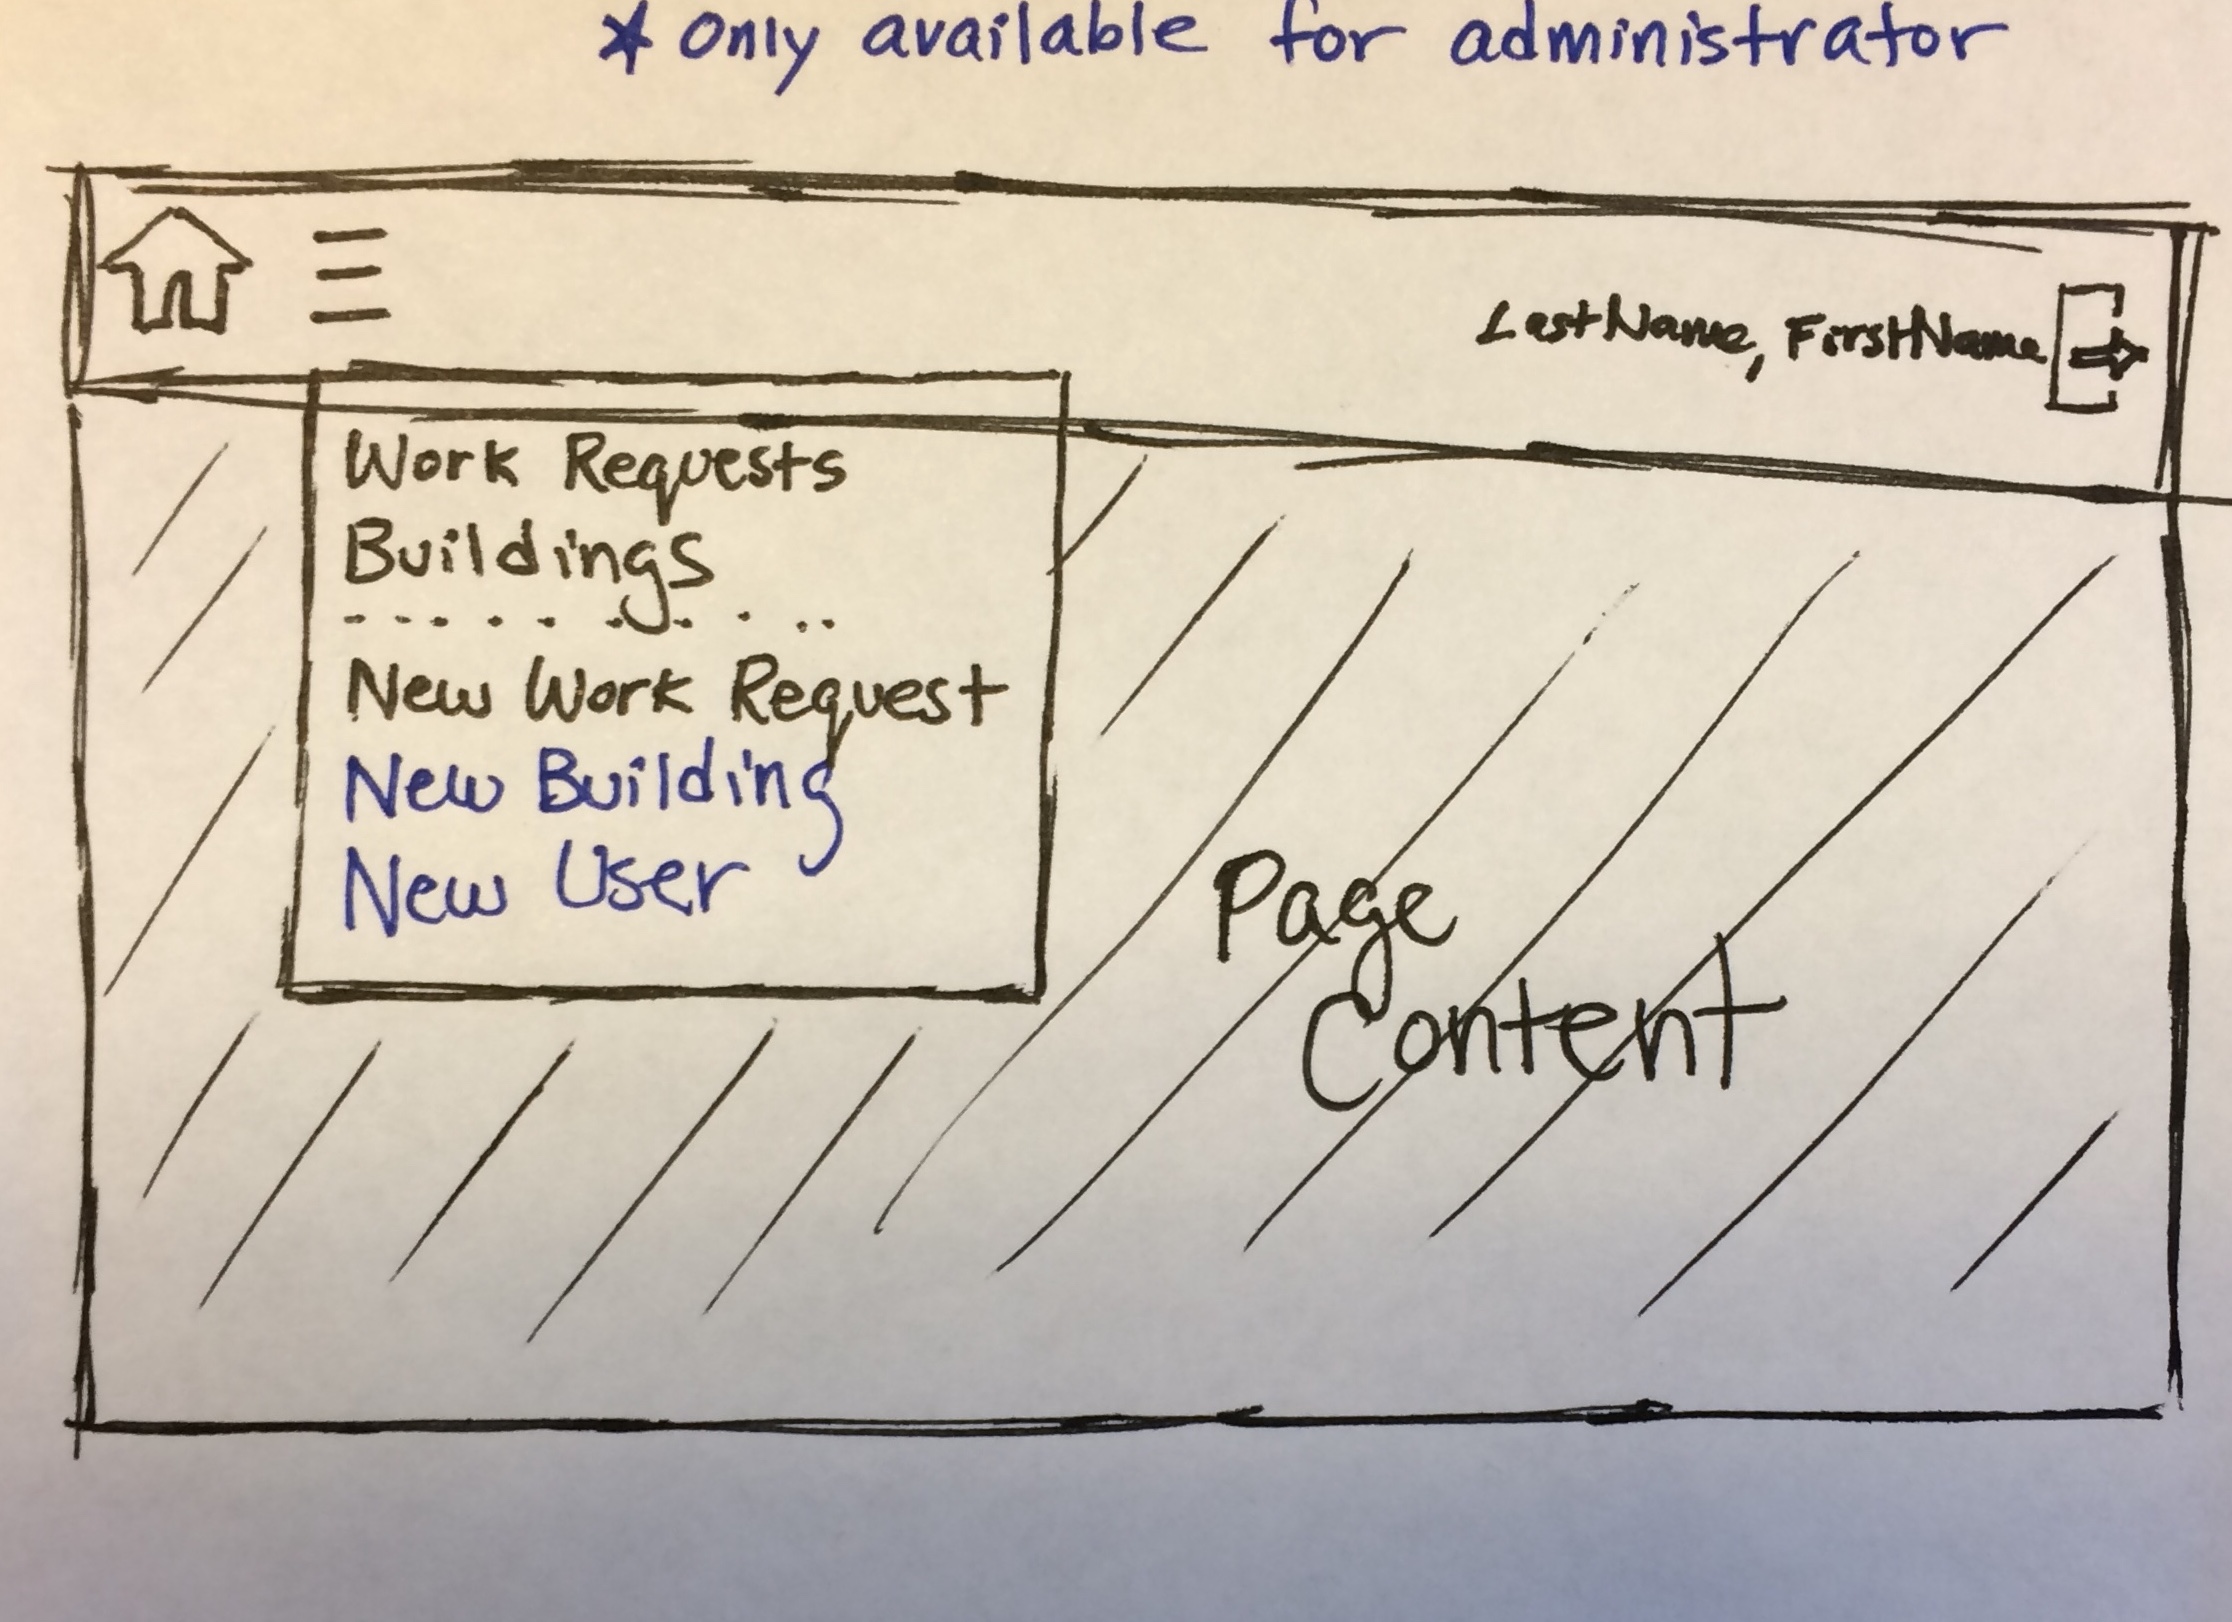 * only available for administrator
LastName, FirstName
Work Requests
Buildings
New Work Request
New Building
New User
Page
Content